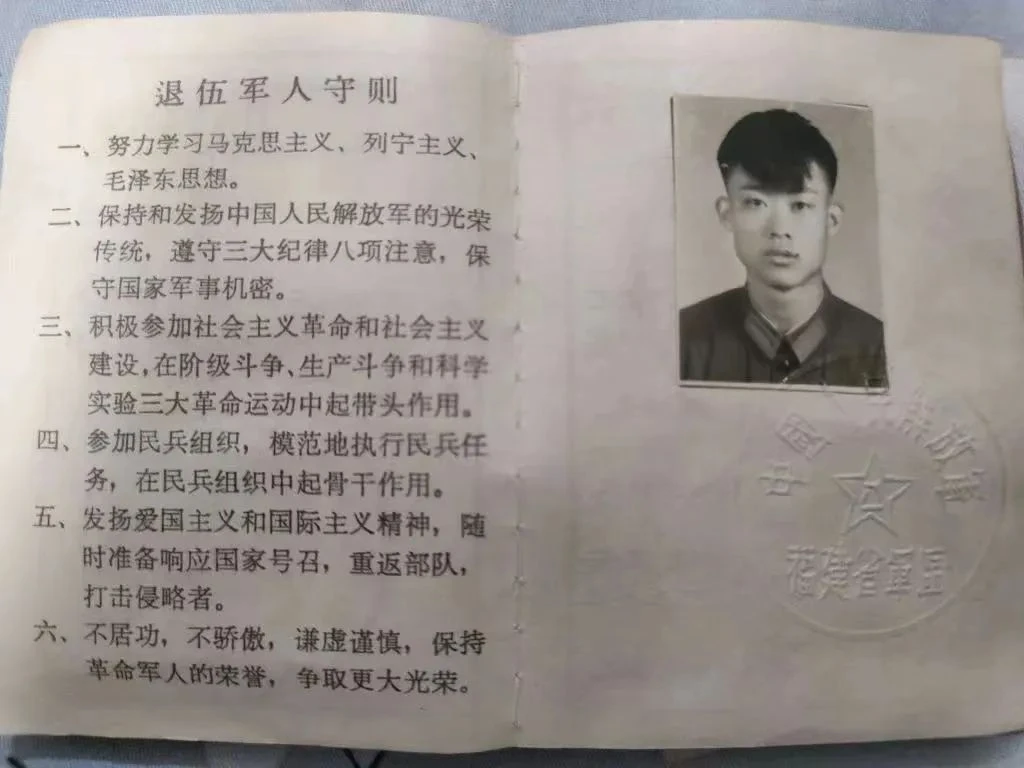 退伍军人守则
一、努力学习马克思主义、列宁主义、
毛泽东思想。
二、保持和发扬中国人民解放军的光荣
传统，遵守三大纪律八项注意，保
守国家军事机密。
三、积极参加社会主义革命和社会主义
建设，在阶级斗争、生产斗争和科学
实验三大革命运动中起带头作用。
四、参加民兵组织，模范地执行民兵任
务，在民兵组织中起骨干作用。
五、发扬爱国主义和国际主义精神，随
时准备响应国家号召，重返部队，
打击侵略者。
六、不居功，不骄傲，谦虚谨慎，保持
革命军人的荣誉，争取更大光荣。
中国 民解放军
福建省军区